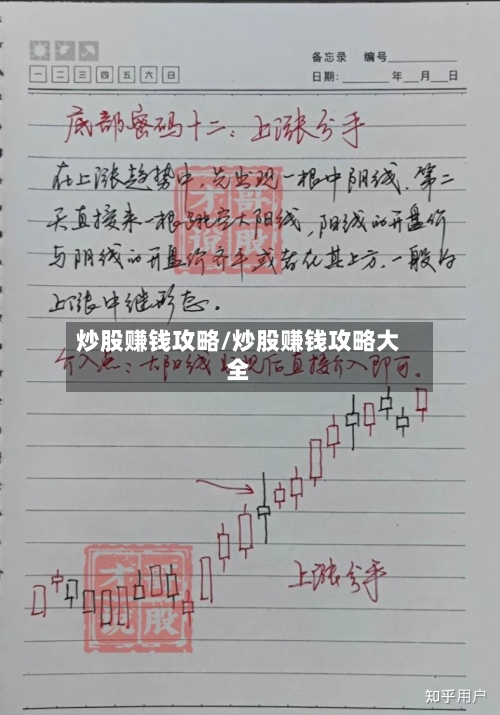 备忘录 编号
一 二 三 四 五 六 日
日期： 年 月 日
底部密码十二：上涨分手
在上涨趋势中，先出现一根中阴线，第二
天直接来一根跳空大阳线，阳线的开盘价
与阴线的开盘价齐平或者在其上方，一般为
上涨中继形态。
炒股赚钱攻略/炒股赚钱攻略大
全
介入点：大阳线出现后直接介入即可。
上涨分手
才哥说股
才哥说股
知乎用户